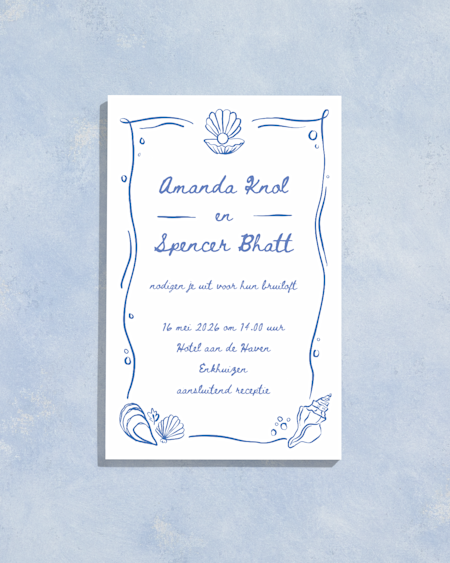 Amanda Knol
en
Spencer Bhatt
nodigen je uit voor hun bruiloft
16 mei 2026 om 14.00 uur
Hotel aan de Haven
Enkhuizen
aansluitend receptie